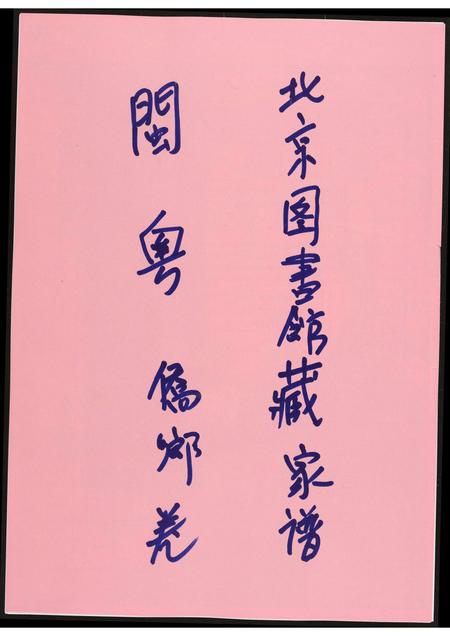 北京图書館藏家谱
閩粤僑鄉卷